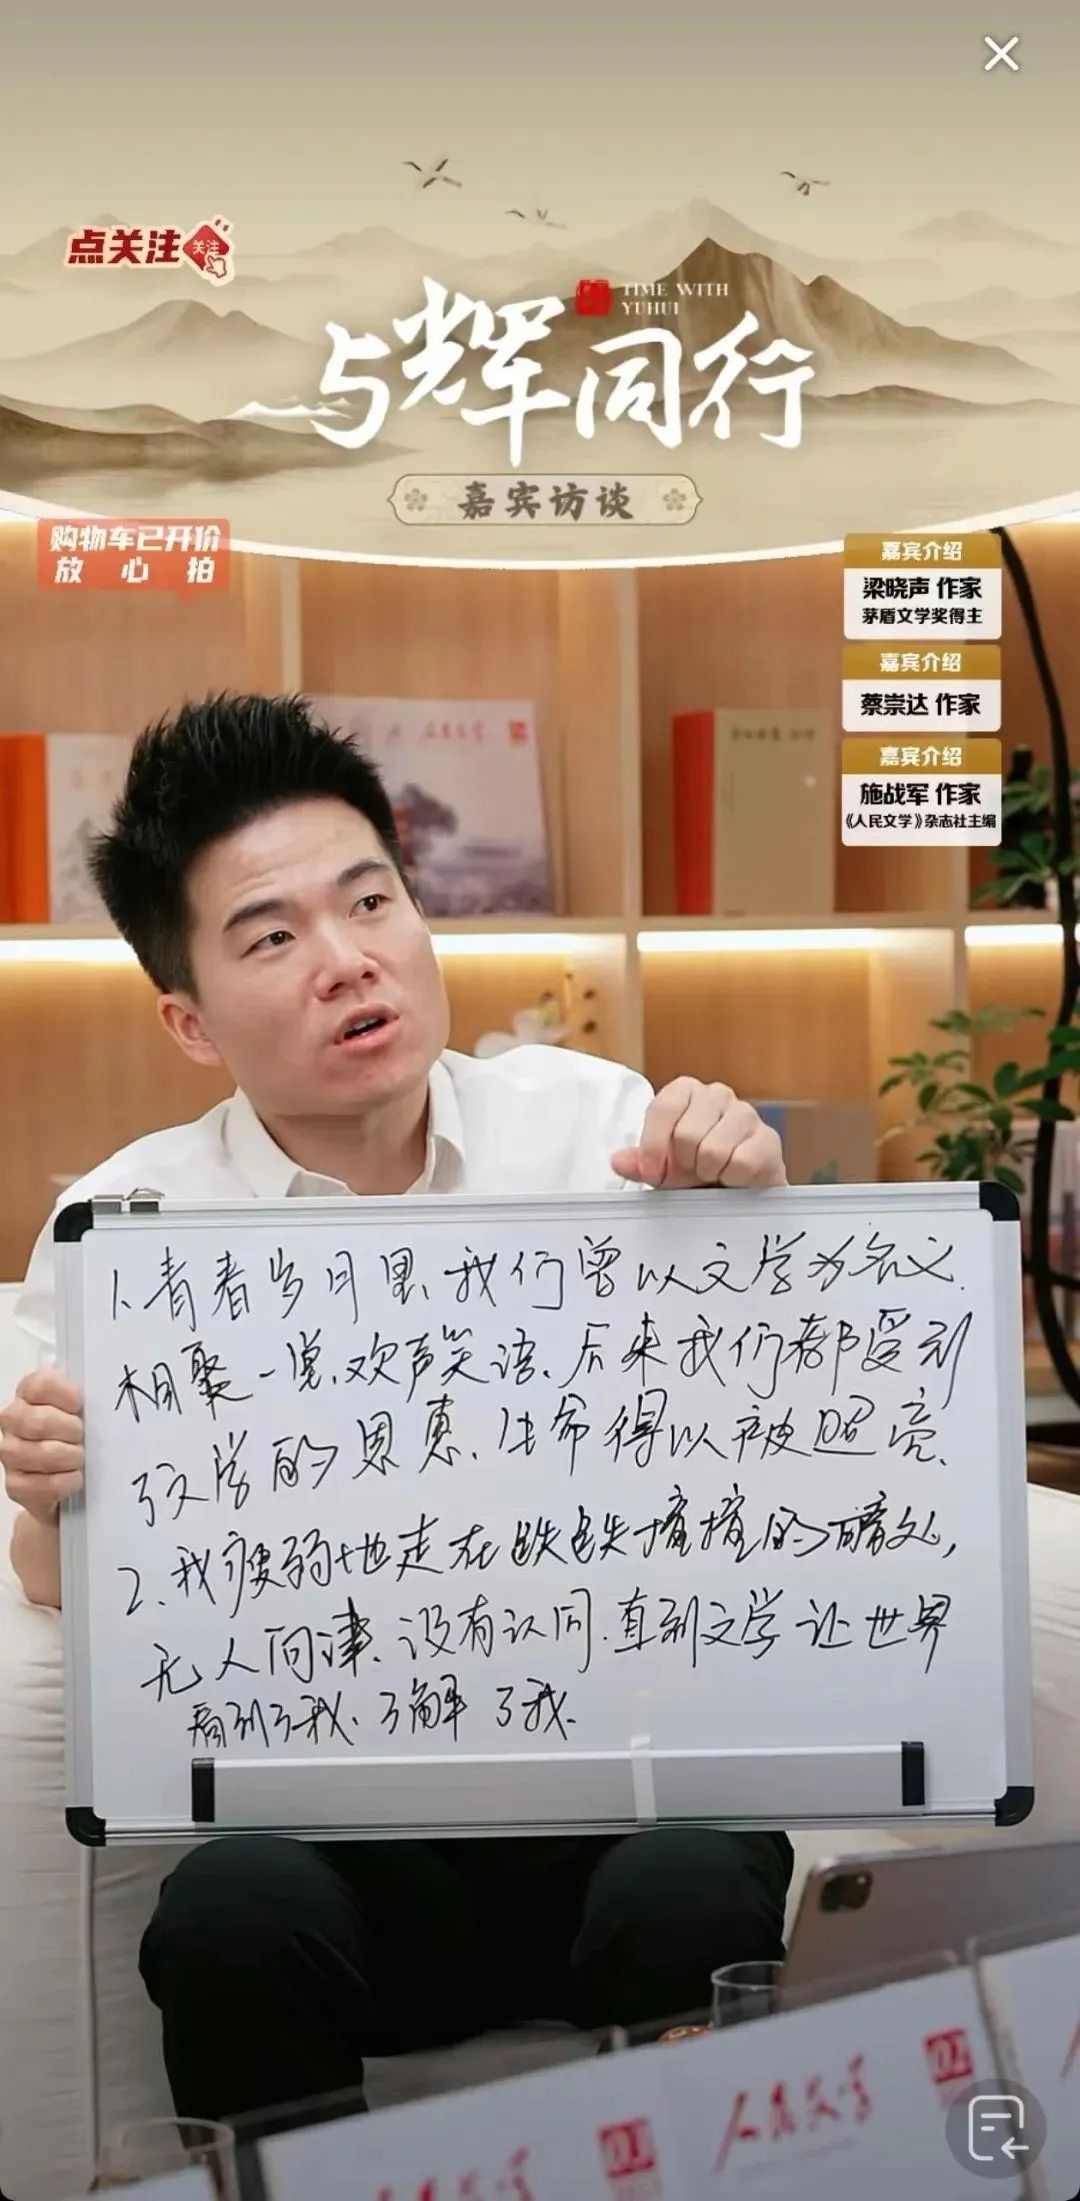 点关注
关注
TIME WITH
YUHUI
与辉同行
嘉宾访谈
购物车已开价
放心拍
嘉宾介绍
梁晓声 作家
茅盾文学奖得主
嘉宾介绍
蔡崇达 作家
嘉宾介绍
施战军 作家
《人民文学》杂志社主编
人民文学
1、青春岁月里、我们曾以文学为名义.
相聚一堂、欢声笑语、后来我们都受到
了文学的恩惠、生命得以被照亮.
2、我疲弱地走在跌跌撞撞的暗处,
无人问津、没有认同.直到文学让世界
看到了我、了解了我.
人民文学
人民文学